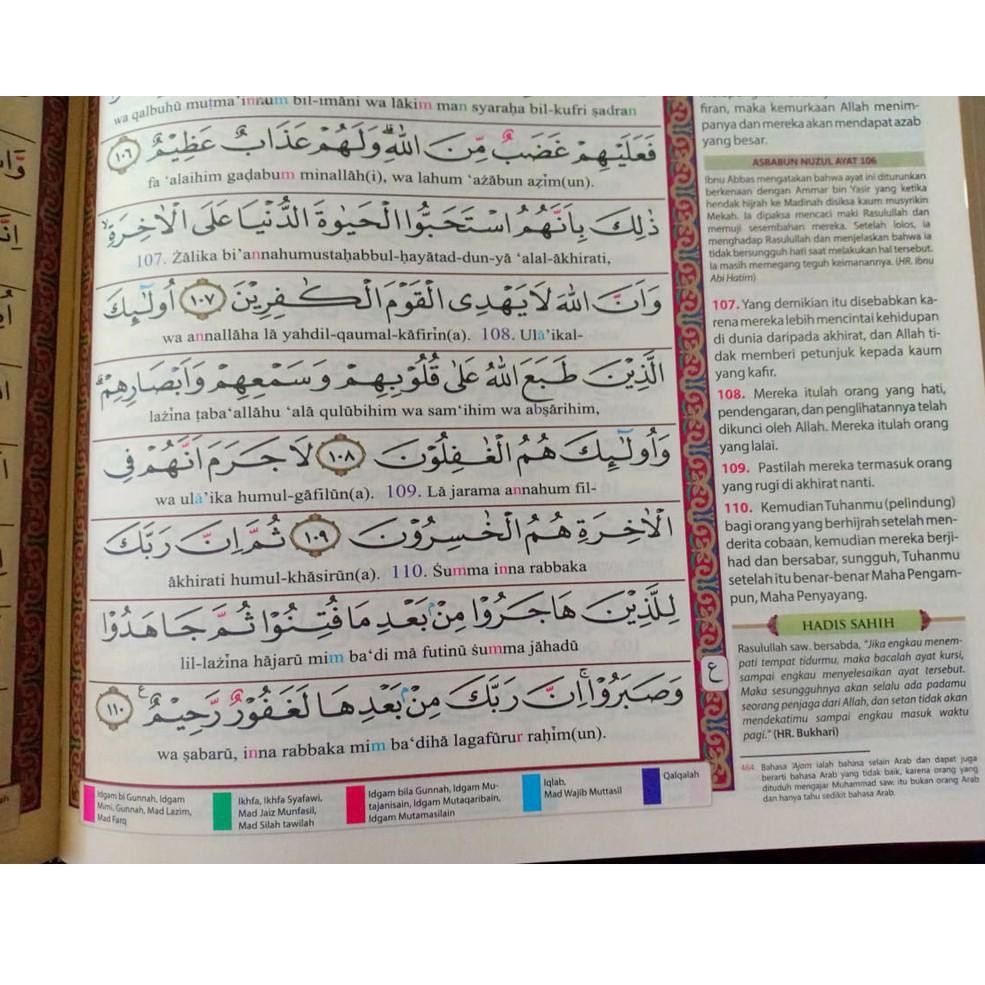 wa qalbuhū muṭma'innum bil-īmāni wa lākim man syaraḥa bil-kufri ṣadran
فَعَلَيْهِمْ غَضَبٌ مِّنَ اللّٰهِ ۗوَلَهُمْ عَذَابٌ عَظِيْمٌ ١٠٦
fa ‘alaihim gaḍabum minallāh(i), wa lahum ‘ażābun aẓīm(un).
ذٰلِكَ بِاَنَّهُمُ اسْتَحَبُّوا الْحَيٰوةَ الدُّنْيَا عَلَى الْاٰخِرَةِۙ
107. Żālika bi'annahumustaḥabbul-ḥayātad-dun-yā ‘alal-ākhirati,
وَاَنَّ اللّٰهَ لَا يَهْدِى الْقَوْمَ الْكٰفِرِيْنَ ١٠٧ اُولٰۤىِٕكَ
wa annallāha lā yahdil-qaumal-kāfirīn(a). 108. Ulā'ikal-
الَّذِيْنَ طَبَعَ اللّٰهُ عَلٰى قُلُوْبِهِمْ وَسَمْعِهِمْ وَاَبْصَارِهِمْۗ
lażīna ṭaba‘allāhu ‘alā qulūbihim wa sam‘ihim wa abṣārihim,
وَاُولٰۤىِٕكَ هُمُ الْغٰفِلُوْنَ ١٠٨ لَا جَرَمَ اَنَّهُمْ فِى
wa ulā'ika humul-gāfilūn(a). 109. Lā jarama annahum fil-
الْاٰخِرَةِ هُمُ الْخٰسِرُوْنَ ١٠٩ ثُمَّ اِنَّ رَبَّكَ
ākhirati humul-khāsirūn(a). 110. Ṡumma inna rabbaka
لِلَّذِيْنَ هَاجَرُوْا مِنْۢ بَعْدِ مَا فُتِنُوْا ثُمَّ جَاهَدُوْا
lil-lażīna hājarū mim ba‘di mā futinū ṡumma jāhadū
وَصَبَرُوْاۚ اِنَّ رَبَّكَ مِنْۢ بَعْدِهَا لَغَفُوْرٌ رَّحِيْمٌ ࣖ ١١٠
wa ṣabarū, inna rabbaka mim ba‘dihā lagafūrur raḥīm(un).
ع
firan, maka kemurkaan Allah menim-
panya dan mereka akan mendapat azab
yang besar.
ASBABUN NUZUL AYAT 106
Ibnu Abbas mengatakan bahwa ayat ini diturunkan
berkenaan dengan Ammar bin Yasir yang ketika
hendak hijrah ke Madinah disiksa kaum musyrikin
Mekah. Ia dipaksa mencaci maki Rasulullah dan
memuji sesembahan mereka. Setelah lolos, ia
menghadap Rasulullah dan menjelaskan bahwa ia
tidak bersungguh hati saat melakukan hal tersebut.
Ia masih memegang teguh keimanannya. (HR. Ibnu
Abi Hatim)
107. Yang demikian itu disebabkan ka-
rena mereka lebih mencintai kehidupan
di dunia daripada akhirat, dan Allah ti-
dak memberi petunjuk kepada kaum
yang kafir.
108. Mereka itulah orang yang hati,
pendengaran, dan penglihatannya telah
dikunci oleh Allah. Mereka itulah orang
yang lalai.
109. Pastilah mereka termasuk orang
yang rugi di akhirat nanti.
110. Kemudian Tuhanmu (pelindung)
bagi orang yang berhijrah setelah men-
derita cobaan, kemudian mereka berji-
had dan bersabar, sungguh, Tuhanmu
setelah itu benar-benar Maha Pengam-
pun, Maha Penyayang.
HADIS SAHIH
Rasulullah saw. bersabda, "Jika engkau menem-
pati tempat tidurmu, maka bacalah ayat kursi,
sampai engkau menyelesaikan ayat tersebut.
Maka sesungguhnya akan selalu ada padamu
seorang penjaga dari Allah, dan setan tidak akan
mendekatimu sampai engkau masuk waktu
pagi." (HR. Bukhari)
464. Bahasa 'Ajam ialah bahasa selain Arab dan dapat juga
berarti bahasa Arab yang tidak baik, karena orang yang
dituduh mengajar Muhammad saw. itu bukan orang Arab
dan hanya tahu sedikit bahasa Arab.
Idgam bi Gunnah, Idgam
Mimi, Gunnah, Mad Lazim,
Mad Farq
Ikhfa, Ikhfa Syafawi,
Mad Jaiz Munfasil,
Mad Silah tawilah
Idgam bila Gunnah, Idgam Mu-
tajanisain, Idgam Mutaqaribain,
Idgam Mutamasilain
Iqlab,
Mad Wajib Muttasil
Qalqalah